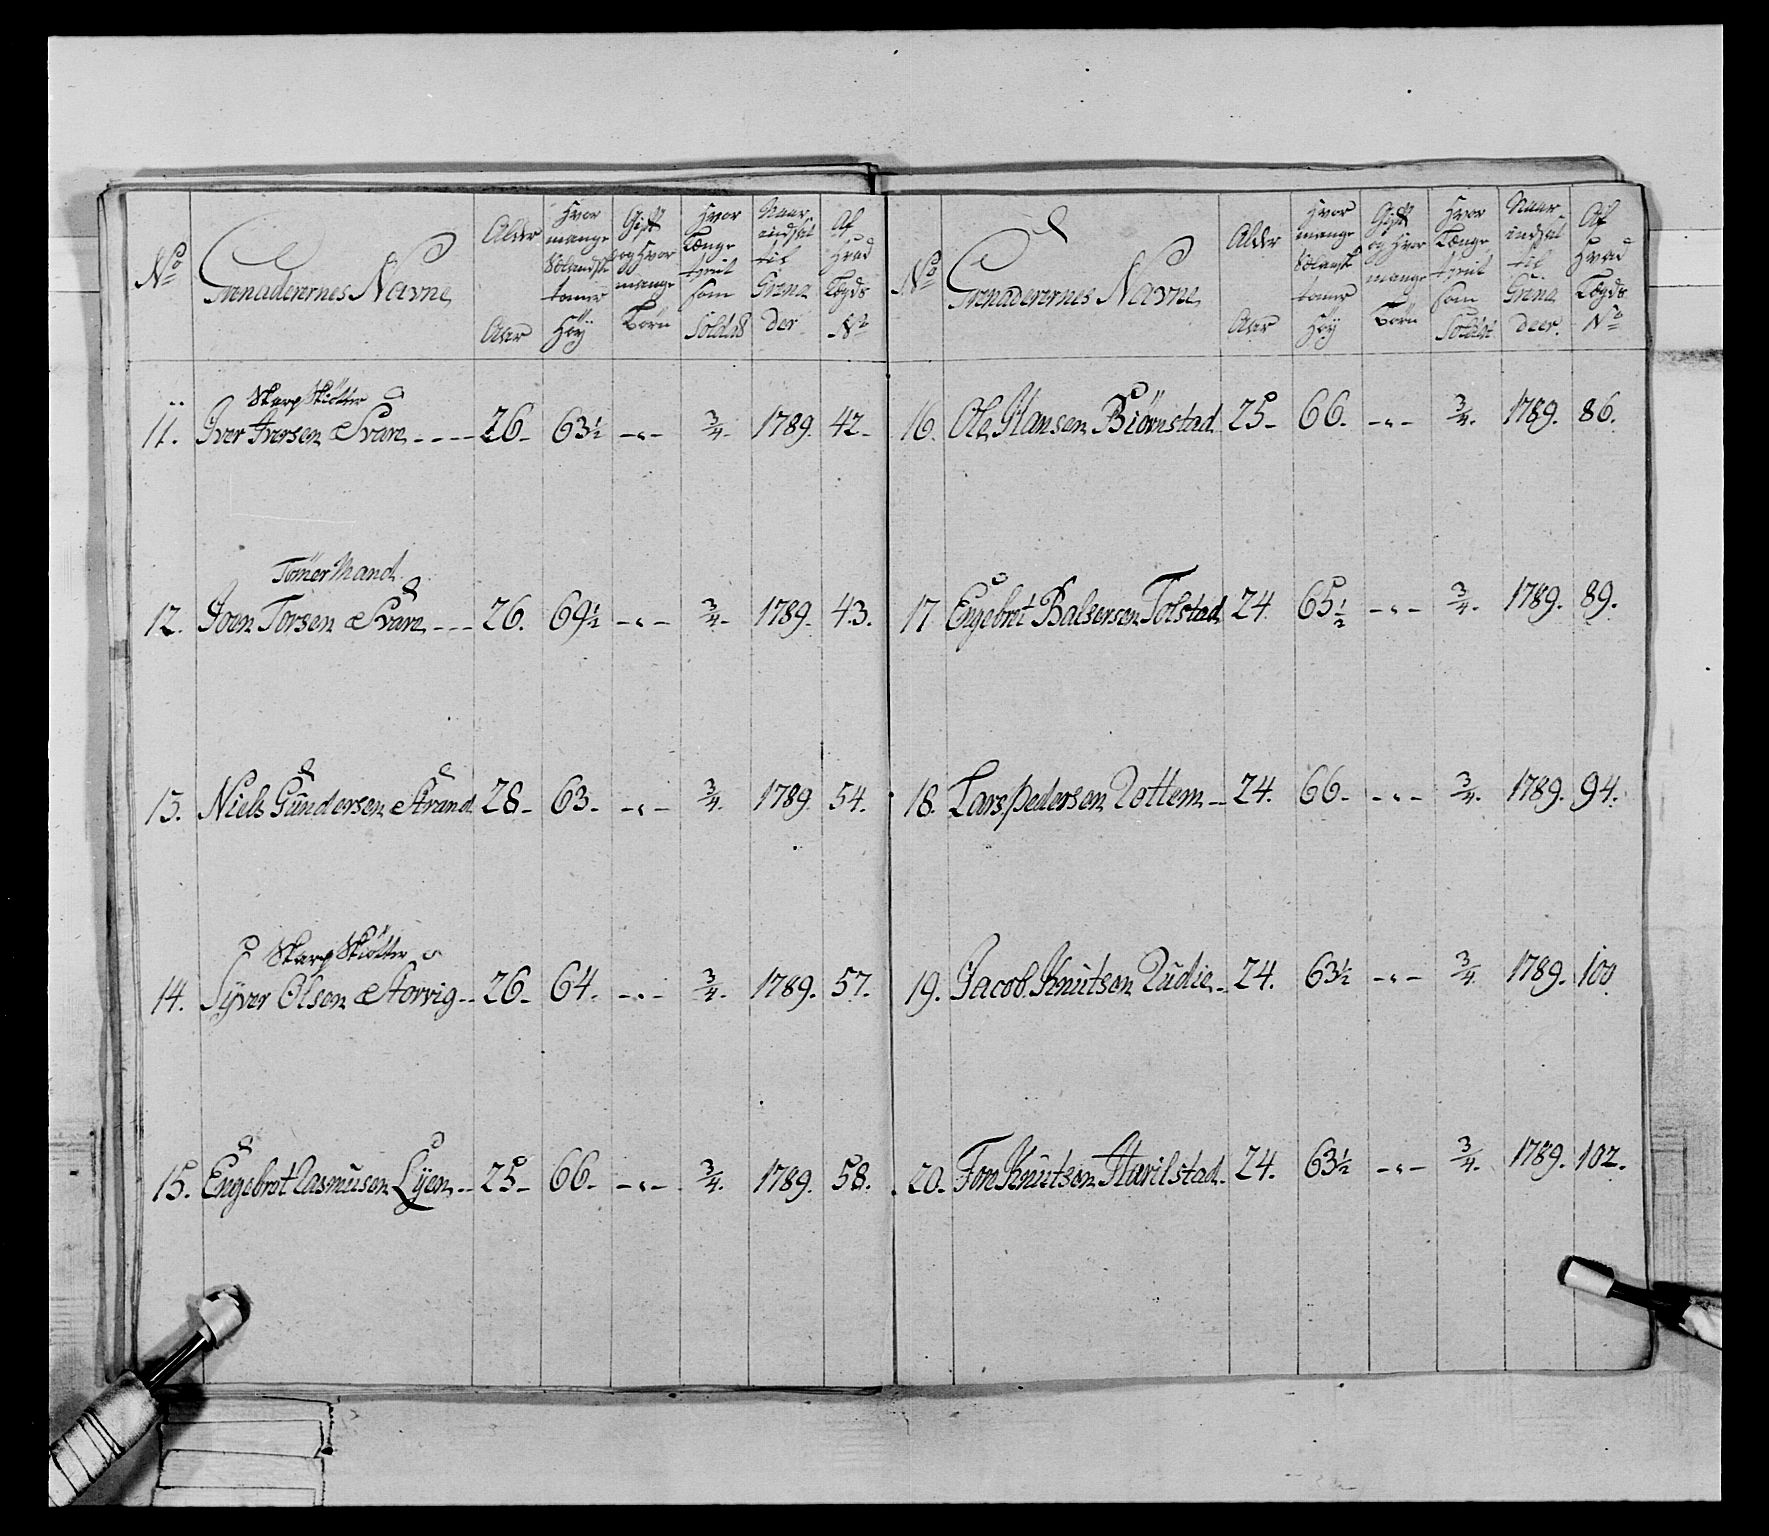 No
Grenaderernes Navne
Alder
Aar
Hvor
mange
tomer
Höÿ
Gift
og Hvor
mange
Börn
Hvor
Længe
tient
som
Soldat
Naar
indsat
til
Grena
der
Af
Hvad
Lægds
No
Skarp Skiötter
11. Iver Iversen Svare 26 63½ -"- ¾ 1789. 42
Tömer Mand
12. Joen Torsen Svare 26. 69½ -"- ¾ 1789. 43.
13. Niels Gundersen Strand 28 63 -"- ¾ 1789. 54.
Skarp Skiötter
14. Syver Olsen Storvig 26 64. -"- ¾ 1789. 57.
15. Engebret Rasmusen Lÿen 25 66 -"- ¾ 1789. 58.
No
Grenaderernes Navne
Alder
Aar
Hvor
mange
tomer
Höÿ
Gift
og Hvor
mange
Börn
Hvor
Længe
tient
som
Soldat
Naar
indsat
til
Grena
deer.
Af
Hvad
Lægds
No
16. Ole Hansen Biörnstad 25 66. -"- ¾ 1789. 86.
17 Engebret Balsersen Tolstad 24 65½ -"- ¾ 1789. 89.
18. Lars Pedersen Rottem 24. 66 -"- ¾ 1789. 94.
19. Jacob Knutsen Rudie 24. 63½ -"- ¾ 1789. 100
20. Knutsen Harilstad 24. 63½ -"- ¾ 1789. 102.